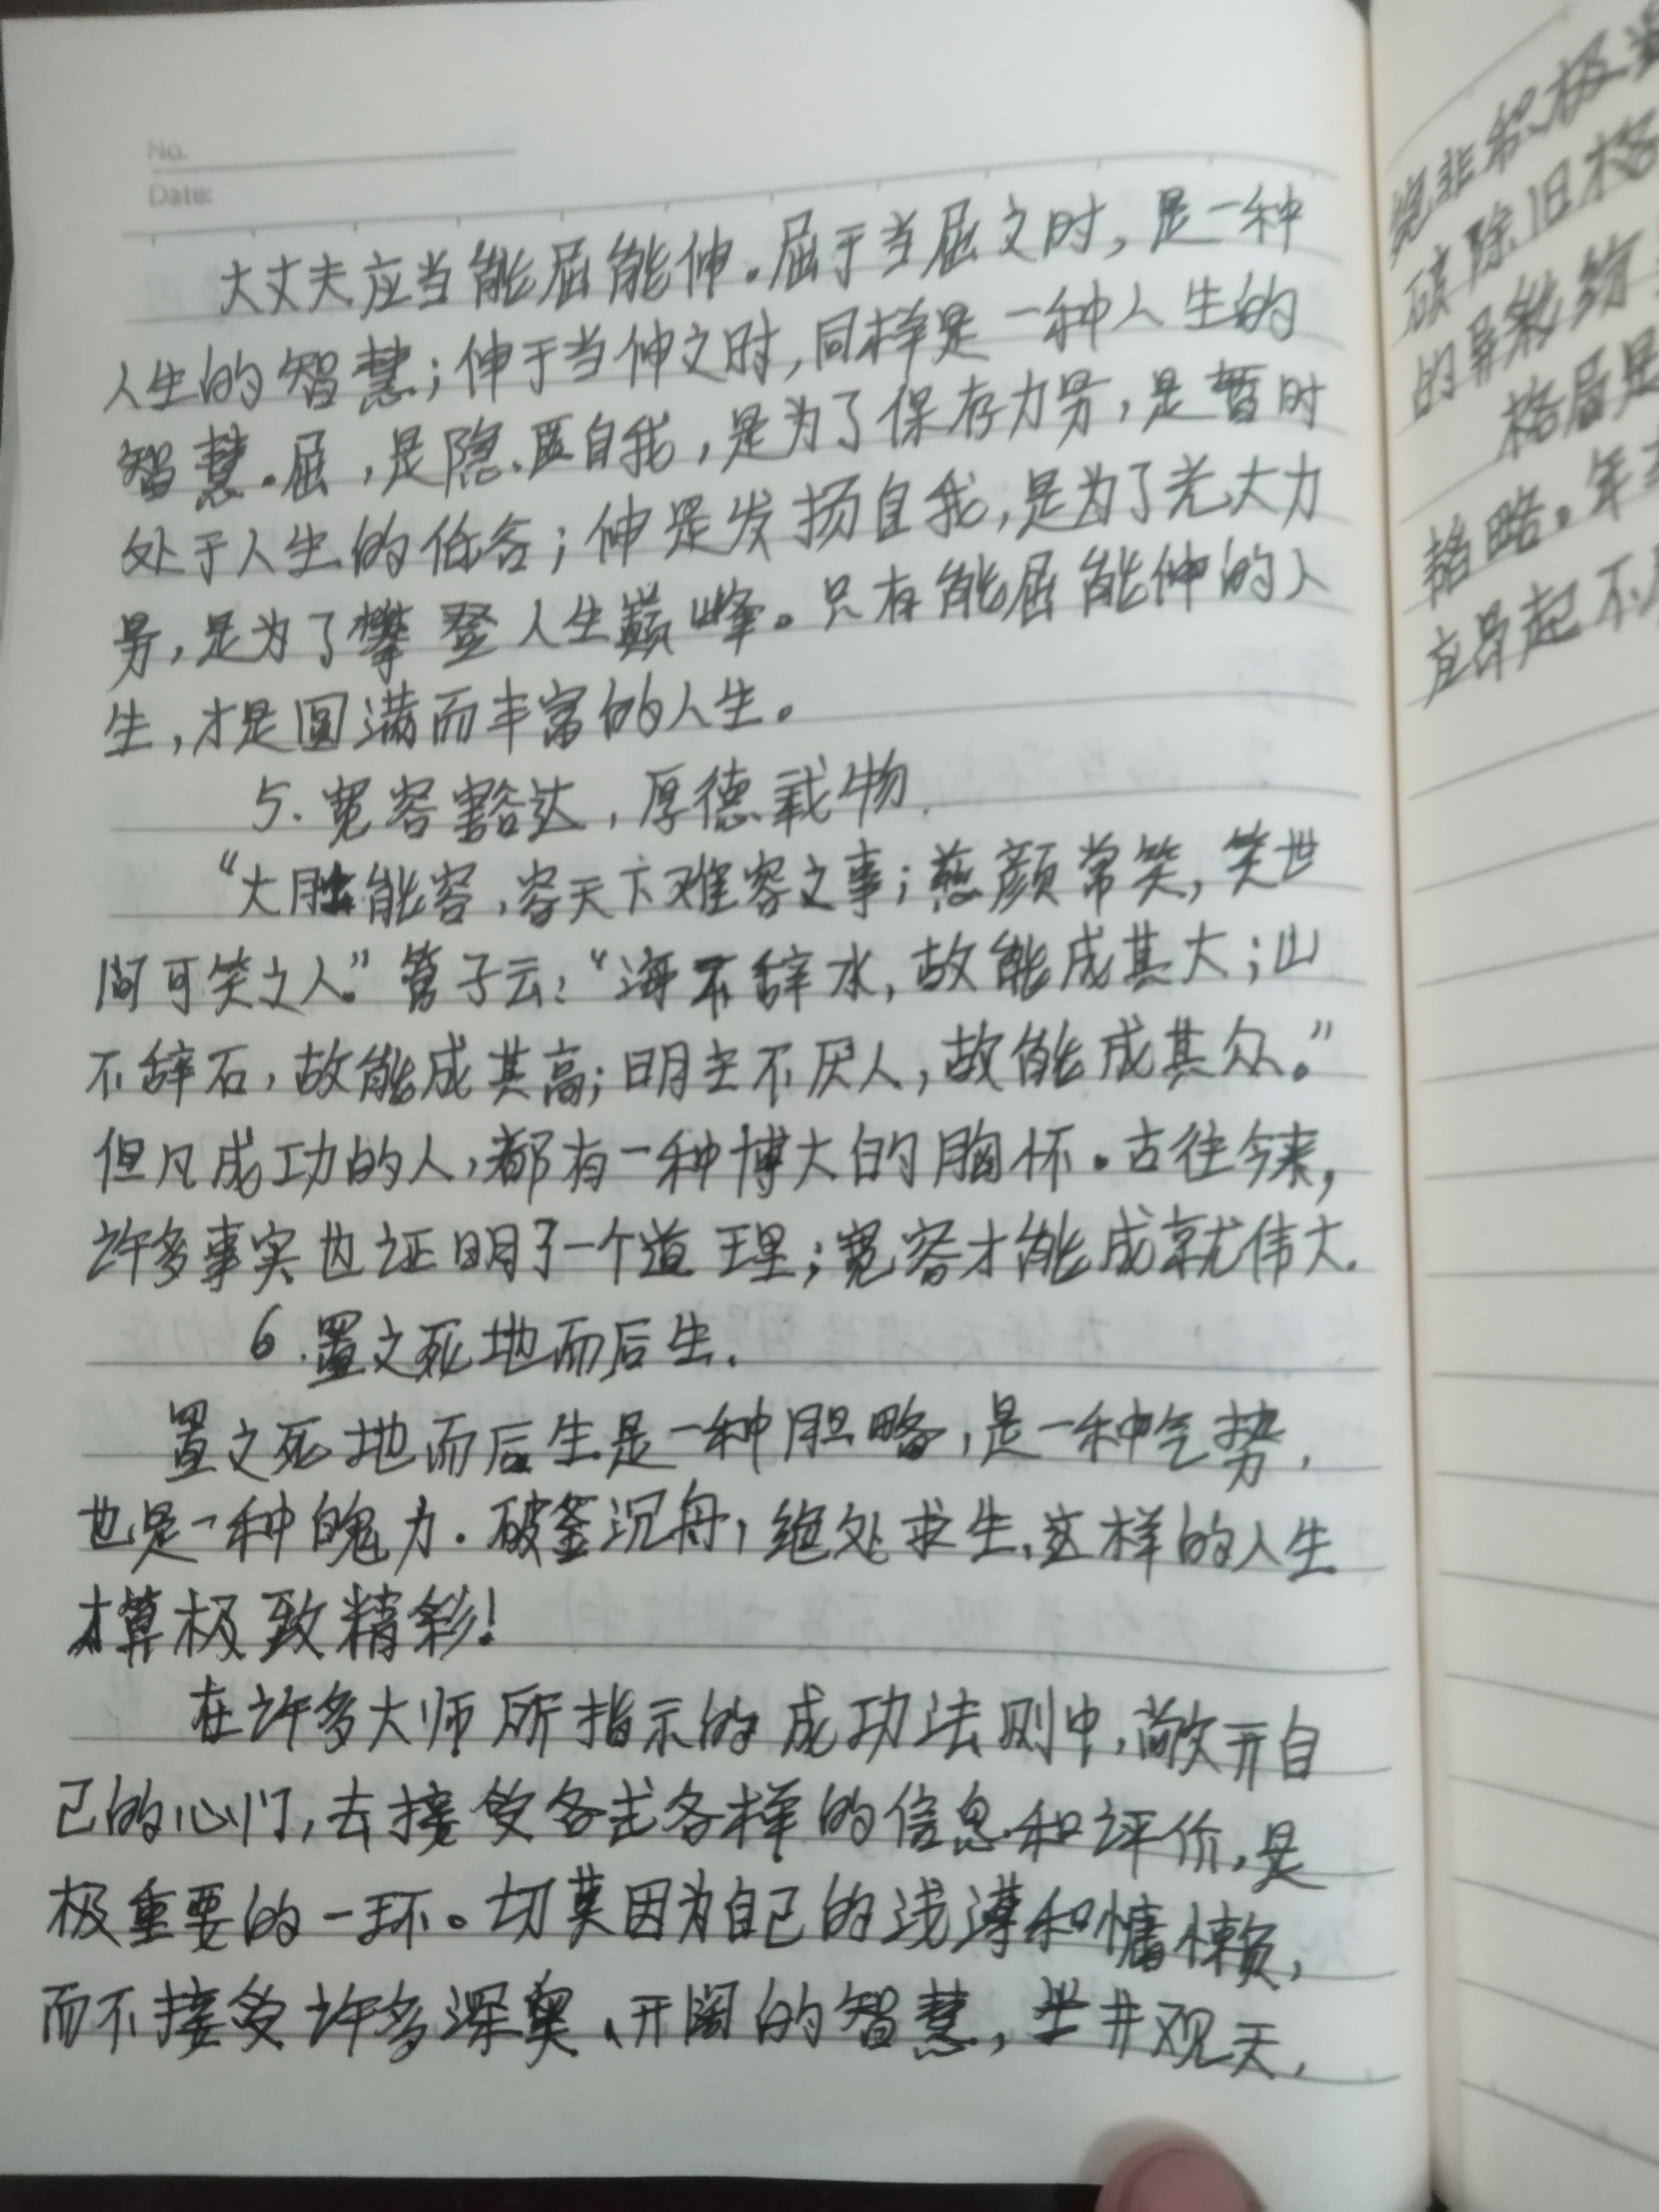 No.
Date:
大丈夫应当能屈能伸。屈于当屈之时，是一种
人生的智慧；伸于当伸之时，同样是一种人生的
智慧。屈，是隐匿自我，是为了保存力量，是暂时
处于人生的低谷；伸是发扬自我，是为了光大力
量，是为了攀登人生巅峰。只有能屈能伸的人
生，才是圆满而丰富的人生。
5.宽容豁达，厚德载物.
“大肚能容，容天下难容之事；慈颜常笑，笑世
间可笑之人。”管子云：“海不辞水，故能成其大；山
不辞石，故能成其高；明主不厌人，故能成其众。”
但凡成功的人，都有一种博大的胸怀。古往今来，
许多事实也证明了一个道理；宽容才能成就伟大.
6.置之死地而后生.
置之死地而后生是一种胆略，是一种气势，
也是一种魄力.破釜沉舟，绝处求生，这样的人生
才算极致精彩！
在许多大师所指示的成功法则中，敞开自
己的心门，去接受各式各样的信息和评价，是
极重要的一环。切莫因为自己的浅薄和慵懒，
而不接受许多深奥、开阔的智慧，坐井观天，
绝非积极
破除旧格
的异彩纷
格局是
韬略。年
应昂起不